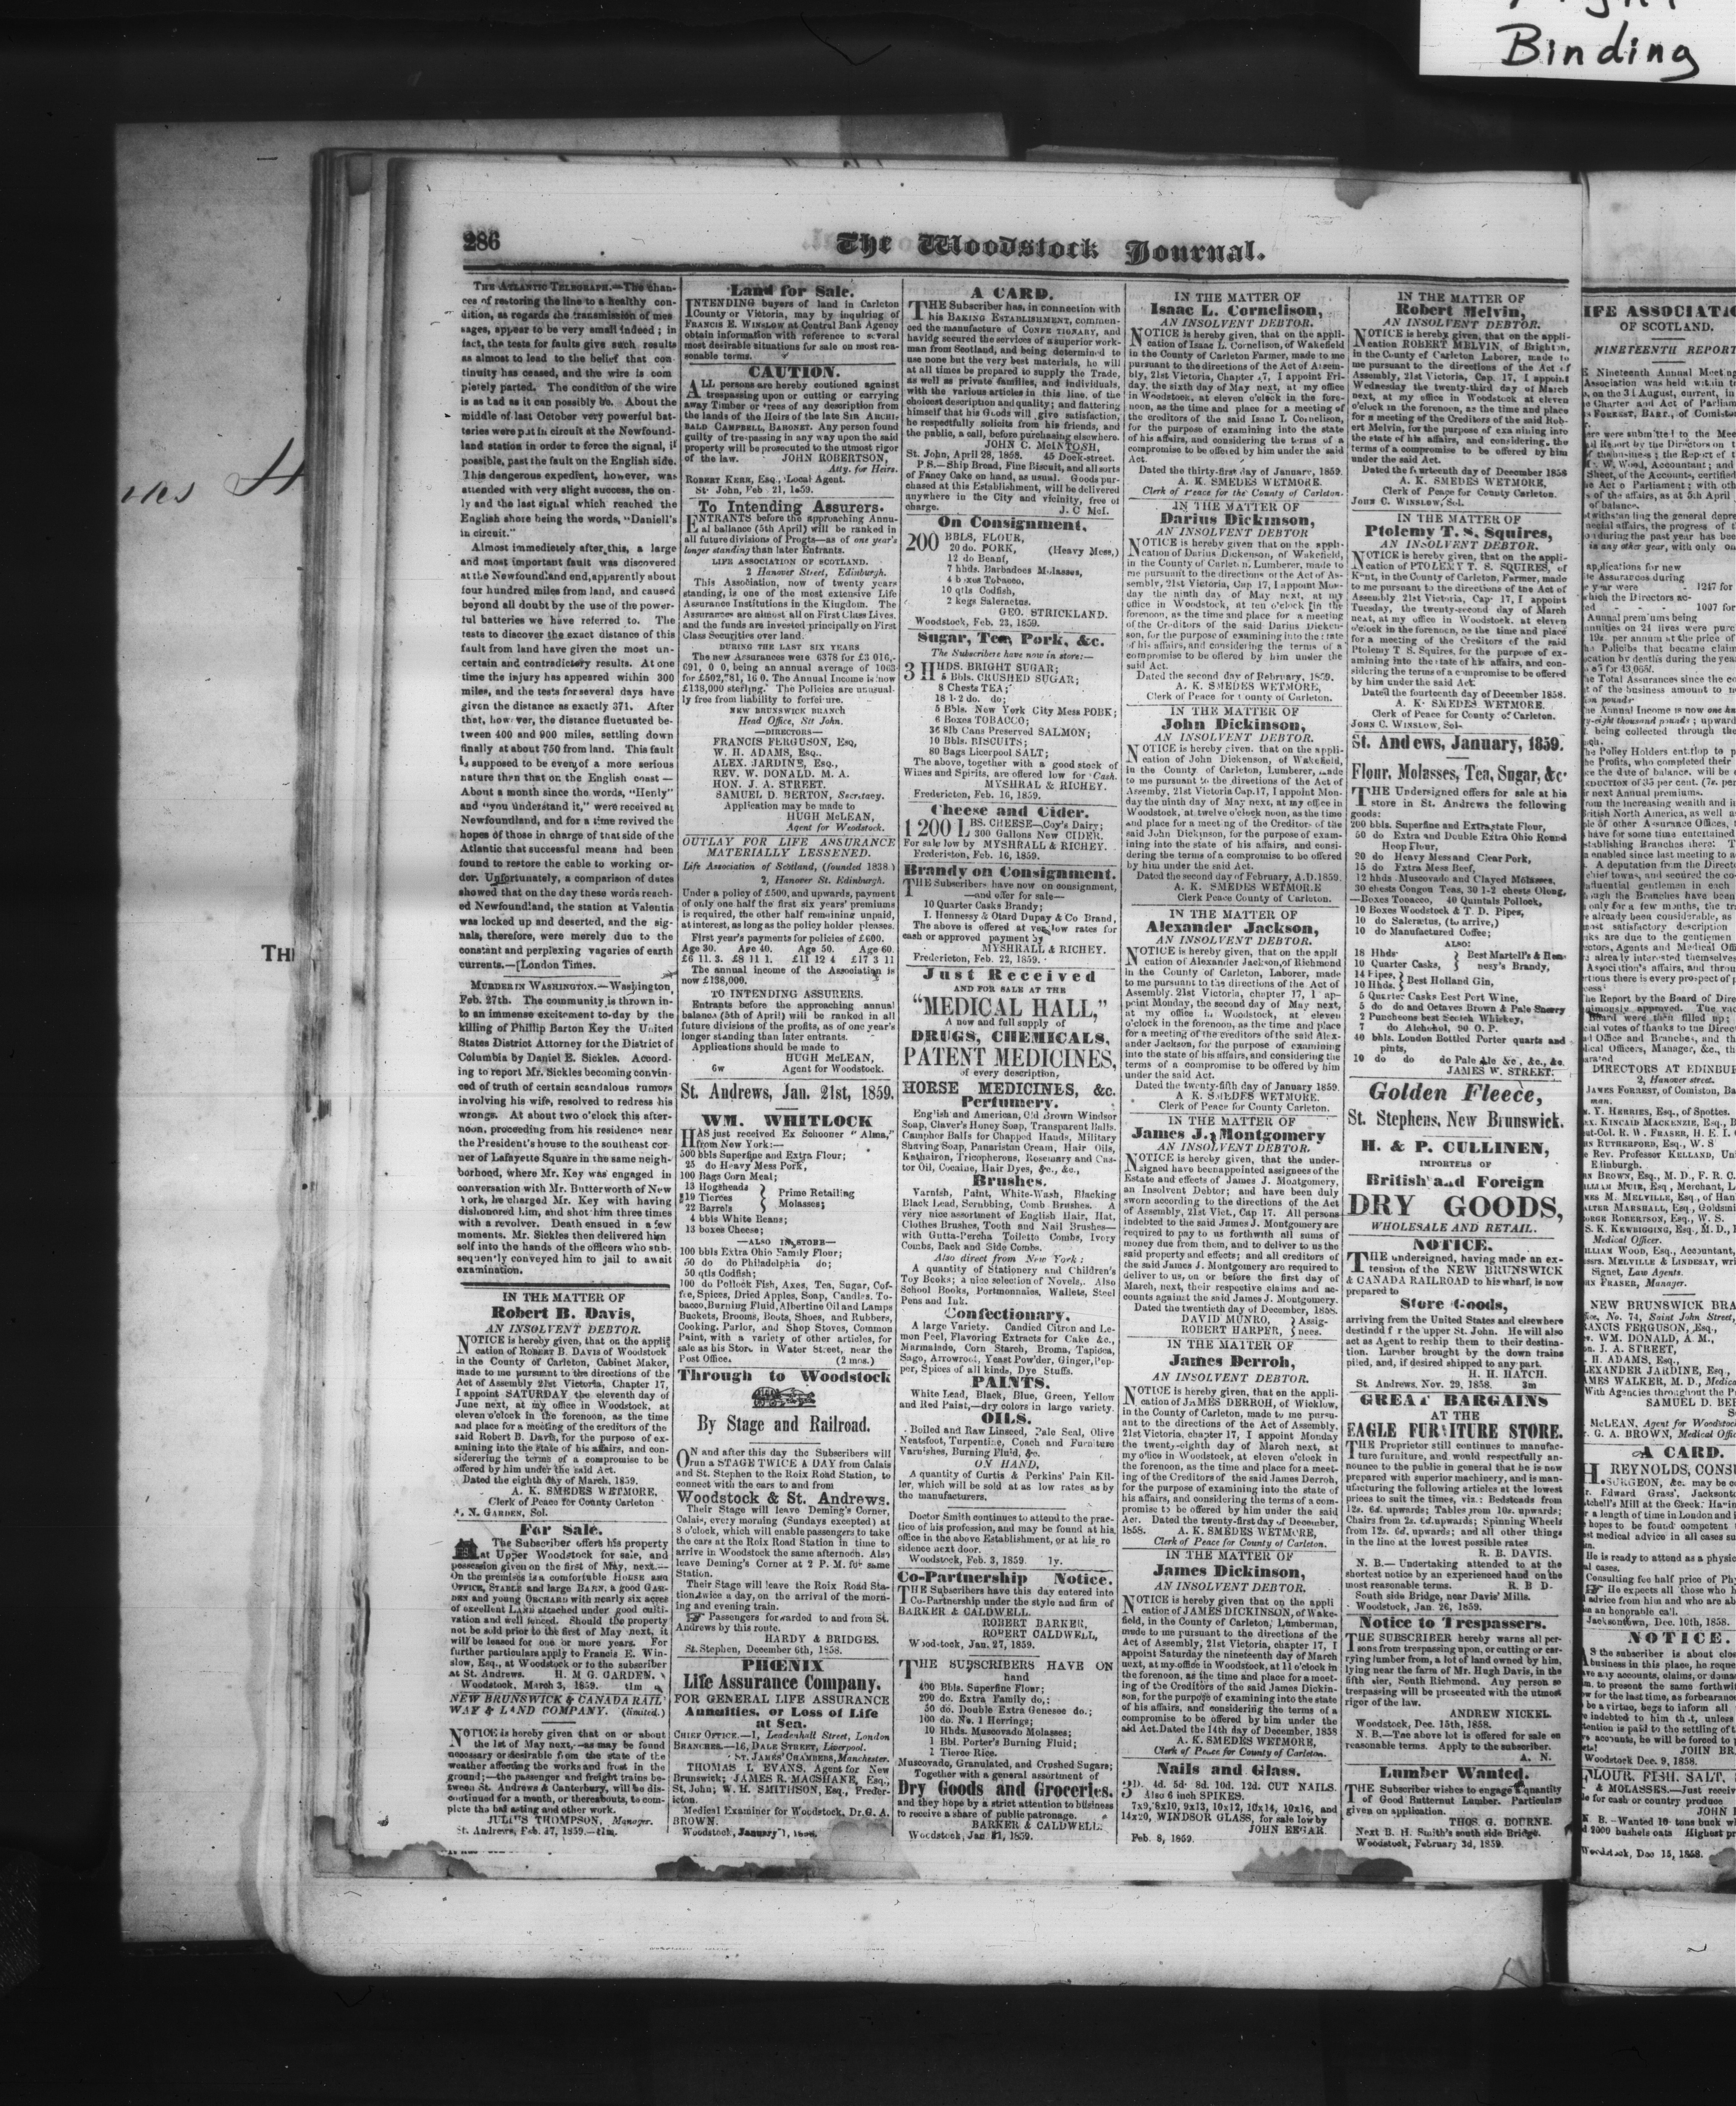 Binding
286
The Woodstock Journal.
THE ATLANTIC TELEGRAPH.—The chan-
ces of restoring the line to a healthy con-
dition, as regards the transmission of mes
sages, appear to be very small indeed; in
fact, the tests for faults give such results
as almost to lead to the belief that con
tinuity has ceased, and the wire is com
pletely parted. The condition of the wire
is as bad as it can possibly be. About the
middle of last October very powerful bat-
teries were put in circuit at the Newfound-
land station in order to force the signal, if
possible, past the fault on the English side.
This dangerous expedient, however, was
attended with very slight success, the on-
ly and the last signal which reached the
English shore being the words, "Daniell's
in circuit."
Almost immediately after this, a large
and most important fault was discovered
at the Newfoundland end, apparently about
four hundred miles from land, and caused
beyond all doubt by the use of the power-
ful batteries we have referred to. The
tests to discover the exact distance of this
fault from land have given the most un-
certain and contradictory results. At one
time the injury has appeared within 300
miles, and the tests for several days have
given the distance as exactly 371. After
that, however, the distance fluctuated be-
tween 400 and 900 miles, settling down
finally at about 750 from land. This fault
is supposed to be even of a more serious
nature than that on the English coast —
About a month since the words, "Henly"
and "you understand it," were received at
Newfoundland, and for a time revived the
hopes of those in charge of that side of the
Atlantic that successful means had been
found to restore the cable to working or-
der. Unfortunately, a comparison of dates
showed that on the day these words reach-
ed Newfoundland, the station at Valentia
was locked up and deserted, and the sig-
nals, therefore, were merely due to the
constant and perplexing vagaries of earth
currents.—[London Times.
MURDER IN WASHINGTON.—Washington
Feb. 27th. The community is thrown in-
to an immense excitement to-day by the
killing of Phillip Barton Key the United
States District Attorney for the District of
Columbia by Daniel E. Sickles. Accord-
ing to report Mr. Sickles becoming convin-
ced of truth of certain scandalous rumors
involving his wife, resolved to redress his
wrongs. At about two o'clock this after-
noon, proceeding from his residence near
the President's house to the southeast cor-
ner of Lafayette Square in the same neigh-
borhood, where Mr. Key was engaged in
conversation with Mr. Butterworth of New
York, he charged Mr. Key with having
dishonored him, and shot him three times
with a revolver. Death ensued in a few
moments. Mr. Sickles then delivered him
self into the hands of the officers who sub-
sequently conveyed him to jail to await
examination.
IN THE MATTER OF
Robert B. Davis,
AN INSOLVENT DEBTOR.
NOTICE is hereby given, that on the appli
cation of ROBERT B. DAVIS of Woodstock
in the County of Carleton, Cabinet Maker,
made to me pursuant to the directions of the
Act of Assembly 21st Victoria, Chapter 17,
I appoint SATURDAY the eleventh day of
June next, at my office in Woodstock, at
eleven o'clock in the forenoon, as the time
and place for a meeting of the creditors of the
said Robert B. Davis, for the purpose of ex-
amining into the state of his affairs, and con-
siderering the terms of a compromise to be
offered by him under the said Act.
Dated the eighth day of March, 1859.
A. K. SMEDES WETMORE,
Clerk of Peace for County Carleton
A. N. GARDEN, Sol.
For Sale.
The Subscriber offers his property
at Upper Woodstock for sale, and
possession given on the first of May, next.—
On the premises is a comfortable HOUSE and
OFFICE, STABLE and large BARN, a good GAR-
DEN and young ORCHARD with nearly six acres
of excellent LAND attached under good culti-
vation and well fenced. Should the property
not be sold prior to the first of May next, it
will be leased for one or more years. For
further particulars apply to Francis E. Win-
slow, Esq., at Woodstock or to the subscriber
at St. Andrews. H. M G. GARDEN.
Woodstock, March 3, 1859. t1m
NEW BRUNSWICK & CANADA RAIL
WAY & LAND COMPANY. (limited.)
NOTICE is hereby given that on or about
the 1st of May next,—as may be found
necessary or desirable from the state of the
weather affecting the works and frost in the
ground;—the passenger and freight trains be-
tween St. Andrews & Canterbury, will be dis-
continued for a month, or thereabouts, to com-
plete the ballasting and other work.
JULIUS THOMPSON, Manager.
St. Andrews, Feb. 17, 1859.—t1m.
Land for Sale.
INTENDING buyers of land in Carleton
County or Victoria, may by inquiring of
FRANCIS E. WINSLOW at Central Bank Agency
obtain information with reference to several
most desirable situations for sale on most rea-
sonable terms.
CAUTION.
ALL persons are hereby coutioned against
trespassing upon or cutting or carrying
away Timber or trees of any description from
the lands of the Heirs of the late SIR ARCHI-
BALD CAMPBELL, BARONET. Any person found
guilty of trespassing in any way upon the said
property will be prosecuted to the utmost rigor
of the law. JOHN ROBERTSON,
Atty. for Heirs.
ROBERT KERR, ESQ., Local Agent.
St. John, Feb. 21, 1859.
To Intending Assurers.
ENTRANTS before the approaching Annu-
al ballance (5th April) will be ranked in
all future divisions of Progts—as of one year's
longer standing than later Entrants.
LIFE ASSOCIATION OF SCOTLAND.
2 Hanover Street, Edinburgh.
This Association, now of twenty years
standing, is one of the most extensive Life
Assurance Institutions in the Kingdom. The
Assurances are almost all on First Class Lives.
and the funds are invested principally on First
Class Securities over land.
DURING THE LAST SIX YEARS
The new Assurances were 6378 for £3 016,-
691, 0 0, being an annual average of 1063
for £502,781, 16 0. The Annual Income is now
£138,000 sterling. The Policies are unusual-
ly free from liability to forfeiture.
NEW BRUNSWICK BRANCH
Head Office, Str John.
—DIRECTORS—
FRANCIS FERGUSON, Esq,
W. H. ADAMS, Esq.,
ALEX. JARDINE, Esq.,
REV. W. DONALD. M. A.
HON. J. A. STREET.
SAMUEL D. BERTON, Secretary.
Application may be made to
HUGH McLEAN,
Agent for Woodstock.
OUTLAY FOR LIFE ASSURANCE
MATERIALLY LESSENED.
Life Association of Scotland, (founded 1838)
2, Hanover St. Edinburgh.
Under a policy of £500, and upwards, payment
of only one half the first six years' premiums
is required, the other half remaining unpaid,
at interest, as long as the policy holder pleases.
First year's payments for policies of £600.
Age 30. Age 40. Age 50. Age 60.
£6 11. 3. £8 11 1. £11 12 4 £17 3 11
The annual income of the Association is
now £138,000.
TO INTENDING ASSURERS.
Entrants before the approaching annual
balance (5th of April) will be ranked in all
future divisions of the profits, as of one year's
longer standing than later entrants.
Applications should be made to
HUGH McLEAN,
6w Agent for Woodstock.
St. Andrews, Jan. 21st, 1859.
WM. WHITLOCK
HAS just received Ex Schooner "Alma,"
from New York:—
500 bbls Superfine and Extra Flour;
25 do Heavy Mess Pork,
100 Bags Corn Meal;
13 Hogsheads
19 Tierces
22 Barrels
Prime Retailing
Molasses;
4 bbls White Beans;
13 boxes Cheese;
—ALSO IN STORE—
100 bbls Extra Ohio Family Flour;
50 do do Philadelphia do;
50 qtls Codfish;
100 do Pollock Fish, Axes, Tea, Sugar, Cof-
fee, Spices, Dried Apples, Soap, Candles. To-
bacco, Burning Fluid, Albertine Oil and Lamps
Buckets, Brooms, Boots, Shoes, and Rubbers,
Cooking, Parlor, and Shop Stoves, Common
Paint, with a variety of other articles, for
sale as his Store in Water Street, near the
Post Office. (2 mos.)
Through to Woodstock
By Stage and Railroad.
ON and after this day the Subscribers will
run a STAGE TWICE A DAY from Calais
and St. Stephen to the Roix Road Station, to
connect with the cars to and from
Woodstock & St. Andrews.
Their Stage will leave Deming's Corner,
Calais, every morning (Sundays excepted) at
8 o'clock, which will enable passengers to take
the cars at the Roix Road Station in time to
arrive in Woodstock the same afternoon. Also
leave Deming's Corner at 2 P. M. for same
Station.
Their Stage will leave the Roix Road Sta-
tion twice a day, on the arrival of the morn-
ing and evening train.
Passengers forwarded to and from St.
Andrews by this route.
HARDY & BRIDGES.
St. Stephen, December 6th, 1858.
PHŒNIX
Life Assurance Company.
FOR GENERAL LIFE ASSURANCE
Annuities, or Loss of Life
at Sea.
CHIEF OFFICE.—1, Leadenhall Street, London
BRANCHES.—16, DALE STREET, Liverpool.
ST. JAMES' CHAMBERS, Manchester.
THOMAS L EVANS. Agent for New
Brunswick; JAMES R. MACSHANE, Esq.,
St, John; W. H. SMITHSON, Esq., Freder-
icton.
Medical Examiner for Woodstock, Dr. G. A.
BROWN.
Woodstock, January 1,
A CARD.
THE Subscriber has, in connection with
his BAKING ESTABLISHMENT, commen-
ced the manufacture of CONFECTIONARY, and
havidg secured the services of a superior work-
man from Scotland, and being determined to
use none but the very best materials, he will
at all times be prepared to supply the Trade,
as well as private families, and individuals,
with the various articles in this line, of the
choicest description and quality; and flattering
himself that his Goods will give satisfaction,
he respectfully solicits from his friends, and
the public, a call, before purchasing elsewhere.
JOHN C. McINTOSH,
St. John, April 28, 1858. 45 Dock-street.
P S.—Ship Bread, Fine Biscuit, and all sorts
of Fancy Cake on hand, as usual. Goods pur-
chased at this Establishment, will be delivered
anywhere in the City and vicinity, free of
charge. J. C McI.
On Consignment.
200 BBLS, FLOUR,
20 do. PORK, (Heavy Mess,)
12 do Beanf,
7 hhds. Barbadoes Molasses,
4 boxes Tobacco,
10 qtls Codfish,
2 kegs Saleractus.
GEO. STRICKLAND.
Woodstock, Feb. 23, 1859.
Sugar, Tea, Pork, &c.
The Subscribers have now in store:—
3 HHDS. BRIGHT SUGAR;
5 Bbls. CRUSHED SUGAR;
8 Chests TEA;
18 1-2 do. do;
5 Bbls. New York City Mess PORK;
6 Boxes TOBACCO;
36 8lb Cans Preserved SALMON;
10 Bbls. BISCUITS;
80 Bags Licerpool SALT;
The above, together with a good stock of
Wines and Spirits, are offered low for Cash.
MYSHRAL & RICHEY.
Fredericton, Feb. 16, 1859.
Cheese and Cider.
1200 LBS. CHEESE—Coy's Dairy;
300 Gallons New CIDER.
For sale low by MYSHRALL & RICHEY.
Fredericton, Feb. 16, 1859.
Brandy on Consignment.
THE Subscribers have now on consignment,
—and offer for sale—
10 Quarter Casks Brandy;
I. Hennessy & Otard Dupay & Co Brand,
The above is offered at very low rates for
cash or approved payment by
MYSHRALL & RICHEY.
Fredericton, Feb. 22, 1859.
Just Received
AND FOR SALE AT THE
"MEDICAL HALL,"
A new and full supply of
DRUGS, CHEMICALS,
PATENT MEDICINES,
of every description,
HORSE MEDICINES, &c.
Perfumery.
English and American, Old Brown Windsor
Soap, Claver's Honey Soap, Transparent Balls.
Camphor Balls for Chapped Hands, Military
Shaving Soap, Panaristan Cream, Hair Oils,
Kathairon, Tricopherous, Rosemary and Cas-
tor Oil, Cocaine, Hair Dyes, &c., &c.,
Brushes.
Varnish, Paint, White-Wash, Blacking
Black Lead, Scrubbing, Comb Brushes. A
very nice assortment of English Hair, Hat,
Clothes Brushes, Tooth and Nail Brushes—
with Gutta-Percha Toiletto Combs, Ivory
Combs, Back and Side Combs.
Also direct from New York:
A quantity of Stationery and Children's
Toy Books; a nice selection of Novels,. Also
School Books, Portmonnaies, Wallets, Steel
Pens and Ink.
Confectionary.
A large Variety. Candied Citron and Le-
mon Peel, Flavoring Extracts for Cake &c.,
Marmalado, Corn Starch, Broma, Tapioca,
Sago, Arrowroot, Yeast Pow'der, Ginger, Pep-
per, Spices of all kinds, Dye Stuffs.
PAINTS.
White Lead, Black, Blue, Green, Yellow
and Red Paint,—dry colors in large variety.
OILS.
Boiled and Raw Linseed, Pale Seal, Olive
Neatsfoot, Turpentine, Coach and Furniture
Varnishes, Burning Fluid, &c.
ON HAND,
A quantity of Curtis & Perkins' Pain Kil-
ler, which will be sold at as low rates as by
the manufacturers.
Doctor Smith continues to attend to the prac-
tice of his profession, and may be found at his
office in the above Establishment, or at his re
sidence next door.
Woodstock, Feb. 3, 1859. 1y.
Co-Partnership Notice.
THE Subscribers have this day entered into
Co-Partnership under the style and firm of
BARKER & CALDWELL.
ROBERT BARKER,
ROBERT CALDWELL,
Woodstock, Jan. 27, 1859.
THE SUBSCRIBERS HAVE ON
hand
400 Bbls. Superfine Flour;
200 do. Extra Family do,;
50 do. Double Extra Genesee do.;
100 do. No. 1 Herrings;
10 Hhds. Muscovado Molasses;
1 Bbl. Porter's Burning Fluid;
1 Tierce Rice.
Muscovado, Granulated, and Crushed Sugars;
Together with a general assortment of
Dry Goods and Groceries.
and they hope by a strict attention to business
to receive a share of public patronage.
BARKER & CALDWELL.
Woodstock, Jan 1859.
IN THE MATTER OF
Isaac L. Cornelison,
AN INSOLVENT DEBTOR.
NOTICE is hereby given, that on the appli-
cation of Isaac L. Cornelison, of Wakefield
in the County of Carleton Farmer, made to me
pursuant to the directions of the Act of Assem-
bly, 21st Victoria, Chapter 17, I appoint Fri-
day, the sixth day of May next, at my office
in Woodstock, at eleven o'clock in the fore-
noon, as the time and place for a meeting of
the creditors of the said Isaac L. Cornelison,
for the purpose of examining into the state
of his affairs, and considering the terms of a
compromise to be offered by him under the said
Act.
Dated the thirty-first day of January, 1859.
A. K. SMEDES WETMORE.
Clerk of Peace for the County of Carleton.
IN THE MATTER OF
Darius Dickinson,
AN INSOLVENT DEBTOR
NOTICE is hereby given that on the appli-
cation of Darius Dickenson, of Wakefield,
in the County of Carleton, Lumberer, made to
me pursuant to the directions of the Act of As-
sembly, 21st Victoria, Cap. 17, I appoint Mon-
day the ninth day of May next, at my
office in Woodstock, at ten o'clock in the
forenoon, as the time and place for a meeting
of the Creditors of the said Darius Dicken-
son, for the purpose of examining into the state
of his affairs, and considering the terms of a
compromise to be offered by him under the
said Act.
Dated the second day of February, 1859.
A. K. SMEDES WETMORE,
Clerk of Peace for County of Carleton.
IN THE MATTER OF
John Dickinson,
AN INSOLVENT DEBTOR.
NOTICE is hereby given. that on the appli-
cation of John Dickenson, of Wakefield,
in the County of Carleton, Lumberer, made
to me pursuant to the directions of the Act of
Assemby, 21st Victoria Cap.17, I appoint Mon-
day the ninth day of May next, at my office in
Woodstock, at twelve o'clock noon, as the time
and place for a meeting of the Creditors of the
said John Dickinson, for the purpose of exam-
ining into the state of his affairs, and consi-
dering the terms of a compromise to be offered
by him under the said Act.
Dated the second day of February, A.D.1859.
A. K. SMEDES WETMORE
Clerk Peace for County of Carleton.
IN THE MATTER OF
Alexander Jackson,
AN INSOLVENT DEBTOR.
NOTICE is hereby given, that on the appli
cation of Alexander Jackson, of Richmond
in the County of Carleton, Laborer, made
to me pursuant to the directions of the Act of
Assembly. 21st Victoria, chapter 17, I ap-
point Monday, the second day of May next,
at my office in Woodstock, at eleven
o'clock in the forenoon, as the time and place
for a meeting of the creditors of the said Alex-
ander Jackson, for the purpose of examining
into the state of his affairs, and considering the
terms of a compromise to be offered by him
under the said Act.
Dated the twenty-fifth day of January 1859.
A K. SMEDES WETMORE.
Clerk of Peace for County Carleton.
IN THE MATTER OF
James J. Montgomery
AN INSOLVENT DEBTOR.
NOTICE is hereby given, that the under-
signed have been appointed assignees of the
Estate and effects of James J. Montgomery,
an Insolvent Debtor; and have been duly
sworn according to the directions of the Act
of Assembly, 21st Vict., Cap 17. All persons
indebted to the said James J. Montgomery are
required to pay to us forthwith all sums of
money due from them, and to deliver to us the
said property and effects; and all creditors of
the said James J. Montgomery are required to
deliver to us, on or before the first day of
March, next, their respective claims and ac-
counts against the said James J. Montgomery.
Dated the twentieth day of December, 1858.
DAVID MUNRO,
ROBERT HARPER,
Assig-
nees.
IN THE MATTER OF
James Derroh,
AN INSOLVENT DEBTOR.
NOTICE is hereby given, that on the appli-
cation of JAMES DERROH, of Wicklow,
in the County of Carleton, made to me pursu-
ant to the directions of the Act of Assembly,
21st Victoria, chapter 17, I appoint Monday
the twenty-eighth day of March next, at
my office in Woodstock, at eleven o'clock in
the forenoon, as the time and place for a meet-
ing of the Creditors of the said James Derroh,
for the purpose of examining into the state of
his affairs, and considering the terms of a com-
promise to be offered by him under the said
Act. Dated the twenty-first day of December,
1858. A. K. SMEDES WETMORE,
Clerk of Peace for County of Carleton.
IN THE MATTER OF
James Dickinson,
AN INSOLVENT DEBTOR.
NOTICE is hereby given that on the appli
cation of JAMES DICKINSON, of Wake-
field, in the County of Carleton, Lumberman,
made to me pursuant to the directions of the
Act of Assembly, 21st Victoria, chapter 17, I
appoint Saturday the nineteenth day of March
next, at my office in Woodstock, at 11 o'clock in
the forenoon, as the time and place for a meet-
ing of the Creditors of the said James Dickin-
son, for the purpose of examining into the state
of his affairs, and considering the terms of a
compromise to be offered by him under the
said Act. Dated the 14th day of December, 1858
A. K. SMEDES WETMORE,
Clerk of Peace for County of Carleton.
Nails and Glass.
3D. 4d. 5d. 8d. 10d. 12d. CUT NAILS.
Also 6 inch SPIKES.
7x9, 8x10, 9x13, 10x12, 10x14, 10x16, and
14x20, WINDSOR GLASS, for sale low by
JOHN EDGAR.
Feb. 8, 1859.
IN THE MATTER OF
Robert Melvin,
AN INSOLVENT DEBTOR.
NOTICE is hereby given, that on the appli-
cation ROBERT MELVIN, of Brighton,
in the County of Carleton Laborer, made to
me pursuant to the directions of the Act of
Assembly, 21st Victoria, Cap. 17, I appoint
Wednesday the twenty-third day of March
next, at my office in Woodstock at eleven
o'clock in the forenoon, as the time and place
for a meeting of the Creditors of the said Rob-
ert Melvin, for the purpose of examining into
the state of his affairs, and considering, the
terms of a compromise to be offered by him
under the said Act.
Dated the fourteenth day of December 1858
A. K. SMEDES WETMORE,
Clerk of Peace for County Carleton.
JOHN C. WINSLOW, Sol.
IN THE MATTER OF
Ptolemy T. S. Squires,
AN INSOLVENT DEBTOR.
NOTICE is hereby given, that on the appli-
cation of PTOLEMY T. S. SQUIRES, of
Kent, in the County of Carleton, Farmer, made
to me pursuant to the directions of the Act of
Assembly 21st Victoria, Cap. 17, I appoint
Tuesday, the twenty-second day of March
next, at my office in Woodstock. at eleven
o'clock in the forenoon, as the time and place
for a meeting of the Creditors of the said
Ptolemy T S. Squires, for the purpose of ex-
amining into the state of his affairs, and con-
sidering the terms of a compromise to be offered
by him under the said Act.
Dated the fourteenth day of December 1858.
A. K. SMEDES WETMORE.
Clerk of Peace for County of Carleton.
JOHN C. WINSLOW, Sol.
St. Andews, January, 1859.
Flour, Molasses, Tea, Sugar, &c
THE Undersigned offers for sale at his
store in St. Andrews the following
goods:
200 bbls. Superfine and Extra State Flour,
50 do Extra and Double Extra Ohio Round
Hoop Flour,
20 do Heavy Mess and Clear Pork,
15 do Extra Mess Beef,
12 hhds Muscovado and Clayed Molasses,
30 chests Congou Teas, 30 1-2 chests Olong,
—Boxes Tobacco, 40 Quintals Pollock,
10 Boxes Woodstock & T. D. Pipes,
10 do Saleratus, (to arrive,)
10 do Manufactured Coffee;
ALSO:
18 Hhds
10 Quarter Casks,
Best Martell's & Hen-
nesy's Brandy,
14 Pipes,
10 Hhds.
Best Holland Gin,
5 Quarter Casks Best Port Wine,
5 do do and Octaves Brown & Pale Sherry
2 Puncheons best Scotch Whiskey,
7 do Alcohol, 90 O. P.
40 bbls. London Bottled Porter quarts and
pints,
10 do do do Pale Ale &c, &c., &c.
JAMES W. STREET.
Golden Fleece,
St. Stephens, New Brunswick.
H. & P. CULLINEN,
IMPORTERS OF
British and Foreign
DRY GOODS,
WHOLESALE AND RETAIL.
NOTICE.
THE undersigned, having made an ex-
tension of the NEW BRUNSWICK
& CANADA RAILROAD to his wharf, is now
prepared to
Store Goods,
arriving from the United States and elsewhere
destind for the upper St. John. He will also
act as Agent to reship them to their destina-
tion. Lumber brought by the down trains
piled, and, if desired shipped to any part.
H. H. HATCH.
St. Andrews, Nov. 29, 1858. 3m
GREAT BARGAINS
AT THE
EAGLE FURNITURE STORE.
THE Proprietor still continues to manufac-
ture furniture, and would respectfully an-
nounce to the public in general that he is now
prepared with superior machinery, and is man-
ufacturing the following articles at the lowest
prices to suit the times, viz.: Bedsteads from
12s. 6d. upwards; Tables from 10s. upwards;
Chairs from 2s. 6d. upwards; Spinning Wheels
from 12s. 6d. upwards; and all other things
in the line at the lowest possible rates
R. B. DAVIS.
N. B.—Undertaking attended to at the
shortest notice by an experienced hand on the
most reasonable terms. R. B D.
South side Bridge, near Davis' Mills.
Woodstock, Jan. 26, 1859.
Notice to Trespassers.
THE SUBSCRIBER hereby warns all per-
sons from trespassing upon, or cutting or car-
rying lumber from, a lot of land owned by him,
lying near the farm of Mr. Hugh Davis, in the
fifth tier, South Richmond. Any person so
trespassing will be prosecuted with the utmost
rigor of the law.
ANDREW NICKEL.
Woodstock, Dec. 15th, 1858.
N. B.—The above lot is offered for sale on
reasonable terms. Apply to the subscriber.
A. N.
Lumber Wanted.
THE Subscriber wishes to engage a quantity
of Good Butternut Lumber. Particulars
given on application.
THOS. G. BOURNE.
Next B. H. Smith's south side Bridge.
Woodstock, February 3d, 1859.
OF SCOTLAND.
NINETEENTH REPORT
DIRECTORS AT EDINBUR
2, Hanover street.
A CARD.
NOTICE.
Woodstock Dec. 9, 1858.
Woodstock, Dec 15, 1858.